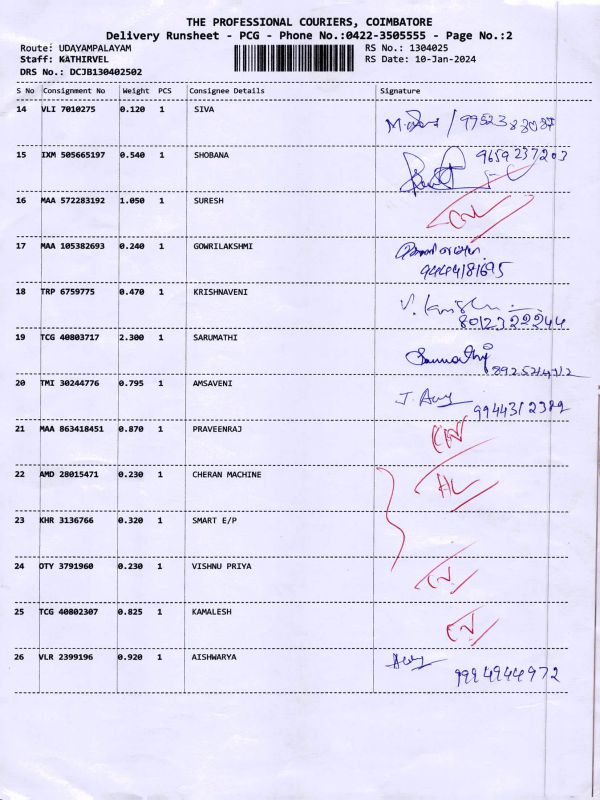 THE PROFESSIONAL COURIERS, COIMBATORE
Delivery Runsheet - PCG - Phone No.:0422-3505555 - Page No.:2
Route: UDAYAMPALAYAM RS No.: 1304025
Staff: KATHIRVEL RS Date: 10-Jan-2024
DRS No.: DCJB130402502
S No Consignment No Weight PCS Consignee Details Signature
14 VLI 7010275 0.120 1 SIVA
15 IXM 505665197 0.540 1 SHOBANA 9659237203
16 MAA 572283192 1.050 1 SURESH
17 MAA 105382693 0.240 1 GOWRILAKSHMI
9444181695
18 TRP 6759775 0.470 1 KRISHNAVENI
8012322244
19 TCG 40803717 2.300 1 SARUMATHI Sarumathy
20 TMI 30244776 0.795 1 AMSAVENI J. Amy
9944312382
21 MAA 863418451 0.870 1 PRAVEENRAJ
22 AMD 28015471 0.230 1 CHERAN MACHINE
23 KHR 3136766 0.320 1 SMART E/P
24 OTY 3791960 0.230 1 VISHNU PRIYA
25 TCG 40802307 0.825 1 KAMALESH
26 VLR 2399196 0.920 1 AISHWARYA
9994944972